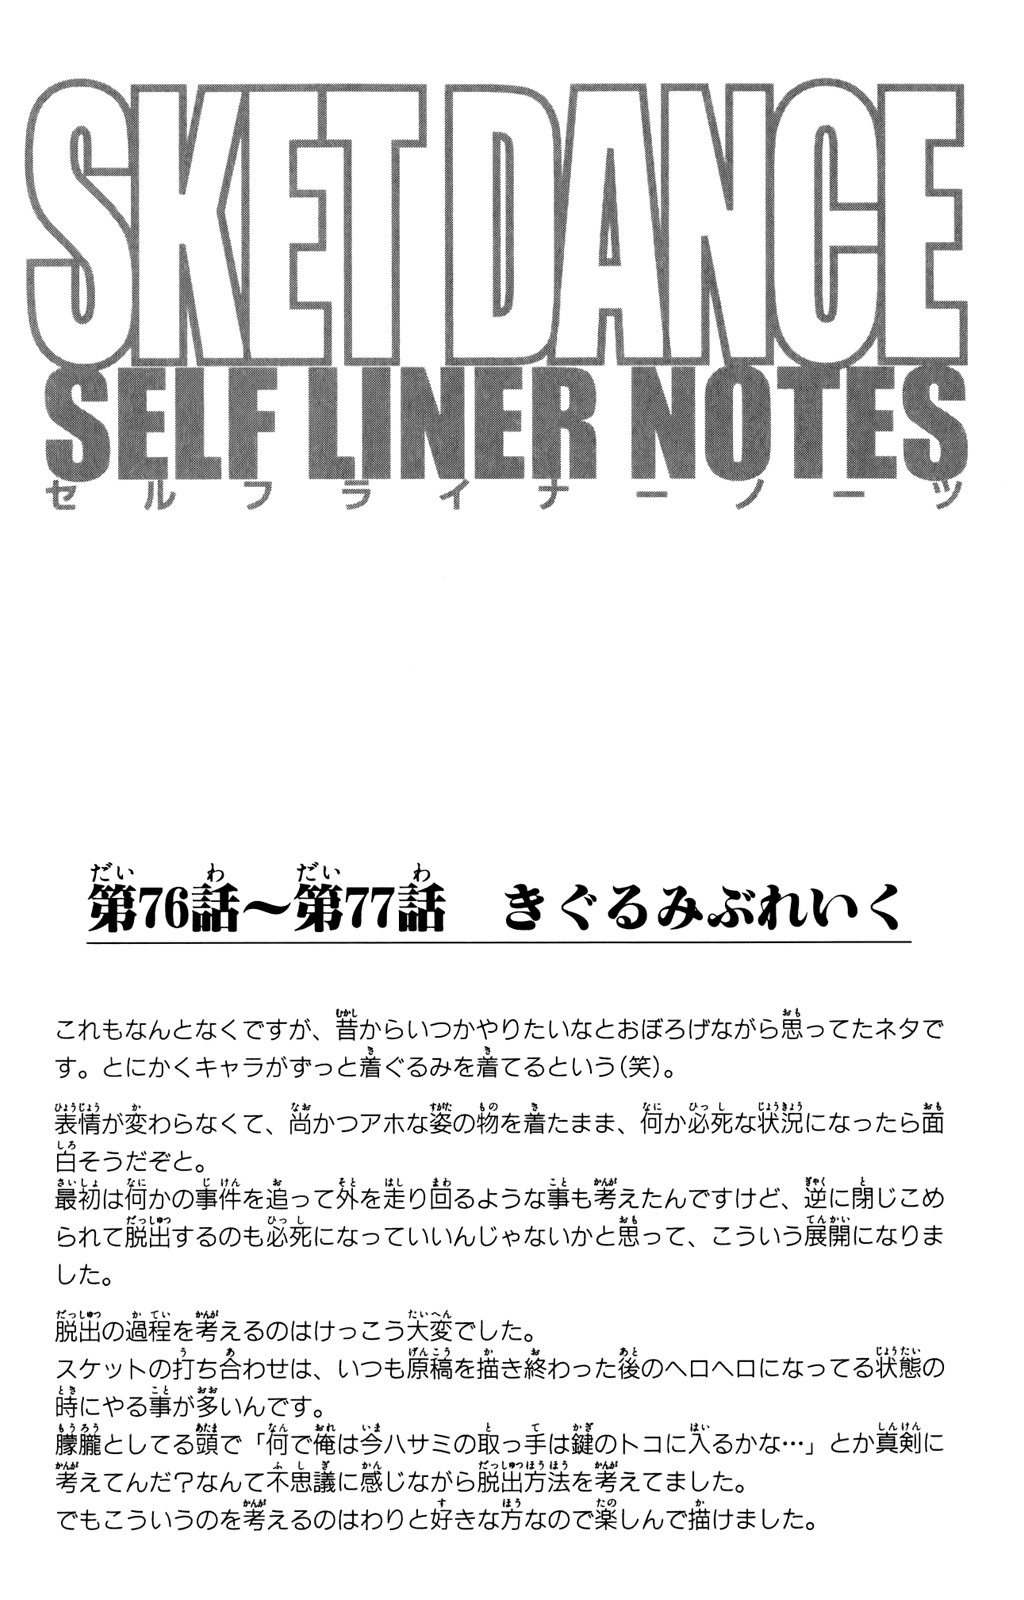 SKET DANCE
SELF LINER NOTES
セルフライナーノーツ
第76話～第77話　きぐるみぶれいく
これもなんとなくですが、昔からいつかやりたいなとおぼろげながら思ってたネタで
す。とにかくキャラがずっと着ぐるみを着てるという(笑)。
表情が変わらなくて、尚かつアホな姿の物を着たまま、何か必死な状況になったら面
白そうだぞと。
最初は何かの事件を追って外を走り回るような事も考えたんですけど、逆に閉じこめ
られて脱出するのも必死になっていいんじゃないかと思って、こういう展開になりま
した。
脱出の過程を考えるのはけっこう大変でした。
スケットの打ち合わせは、いつも原稿を描き終わった後のヘロヘロになってる状態の
時にやる事が多いんです。
朦朧としてる頭で「何で俺は今ハサミの取っ手は鍵のトコに入るかな…」とか真剣に
考えてんだ？なんて不思議に感じながら脱出方法を考えてました。
でもこういうのを考えるのはわりと好きな方なので楽しんで描けました。